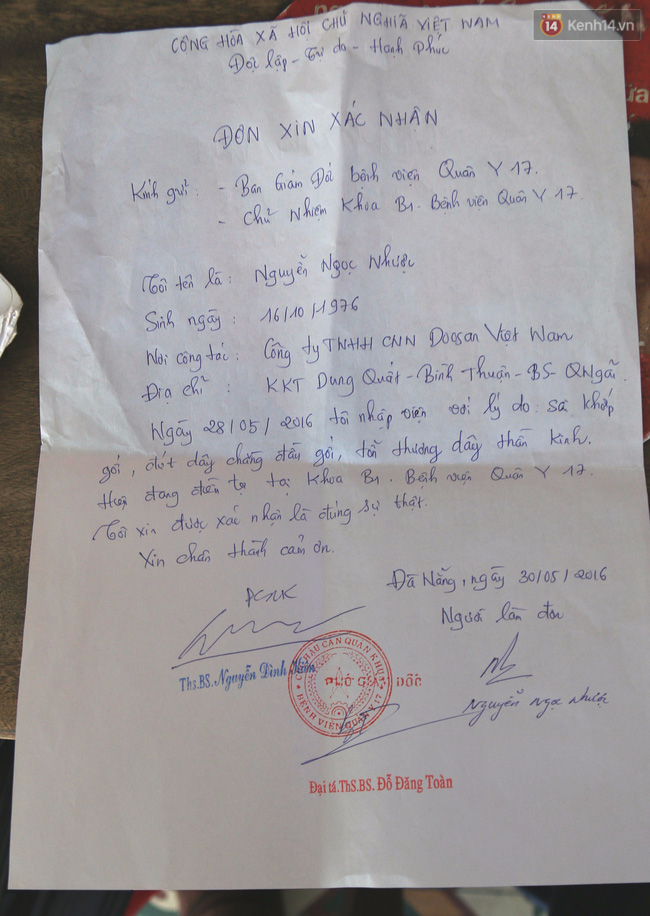 Kenh14.vn
CỘNG HÒA XÃ HỘI CHỦ NGHĨA VIỆT NAM
Độc lập - Tự do - Hạnh Phúc
ĐƠN XIN XÁC NHẬN
Kính gửi: - Ban Giám Đốc bệnh viện Quân Y 17.
- Chủ Nhiệm Khoa B1 - Bệnh viện Quân Y 17
Tôi tên là: Nguyễn Ngọc Nhược
Sinh ngày: 16/10/1976
Nơi công tác: Công ty TNHH CNN Doosan Việt Nam
Địa chỉ: KKT Dung Quất - Bình Thuận - BS - QNgãi
Ngày 28/05/2016 tôi nhập viện với lý do: sai khớp
gối, đứt dây chằng đầu gối, tổn thương dây thần kinh.
Hiện đang điều trị tại Khoa B1. Bệnh viện Quân Y 17.
Tôi xin được xác nhận là đúng sự thật.
Xin chân thành cảm ơn.
Đà Nẵng, ngày 30/05/2016
Người làm đơn
PCNK
Ths.BS. Nguyễn Đình
CỤC HẬU CẦN QUÂN KHU
BỆNH VIỆN QUÂN Y 17
PHÓ GIÁM ĐỐC
Nguyễn Ngọc Nhược
Đại tá.ThS.BS. Đỗ Đăng Toàn